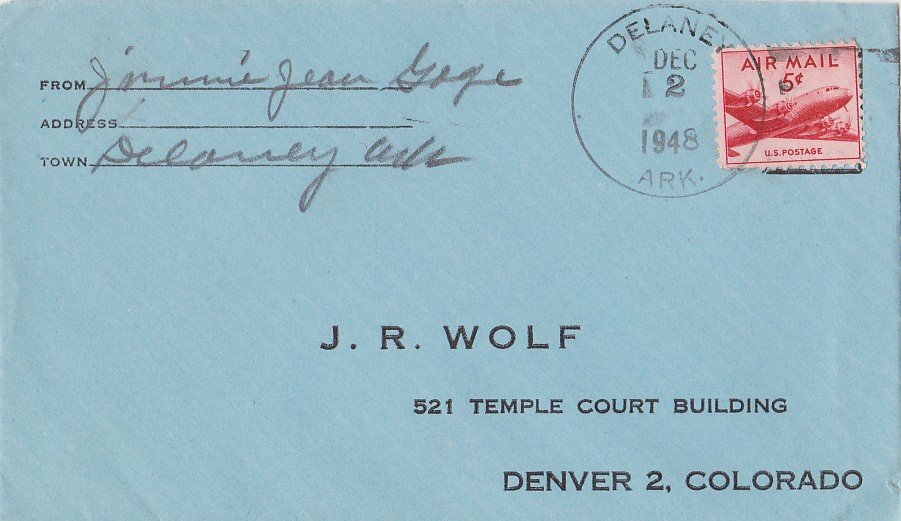 FROM Jimmie Jean Gage
ADDRESS
TOWN Delaney Ark
DELANEY
DEC
2
1948
ARK.
AIR MAIL
5¢
U.S. POSTAGE
J. R. WOLF
521 TEMPLE COURT BUILDING
DENVER 2, COLORADO